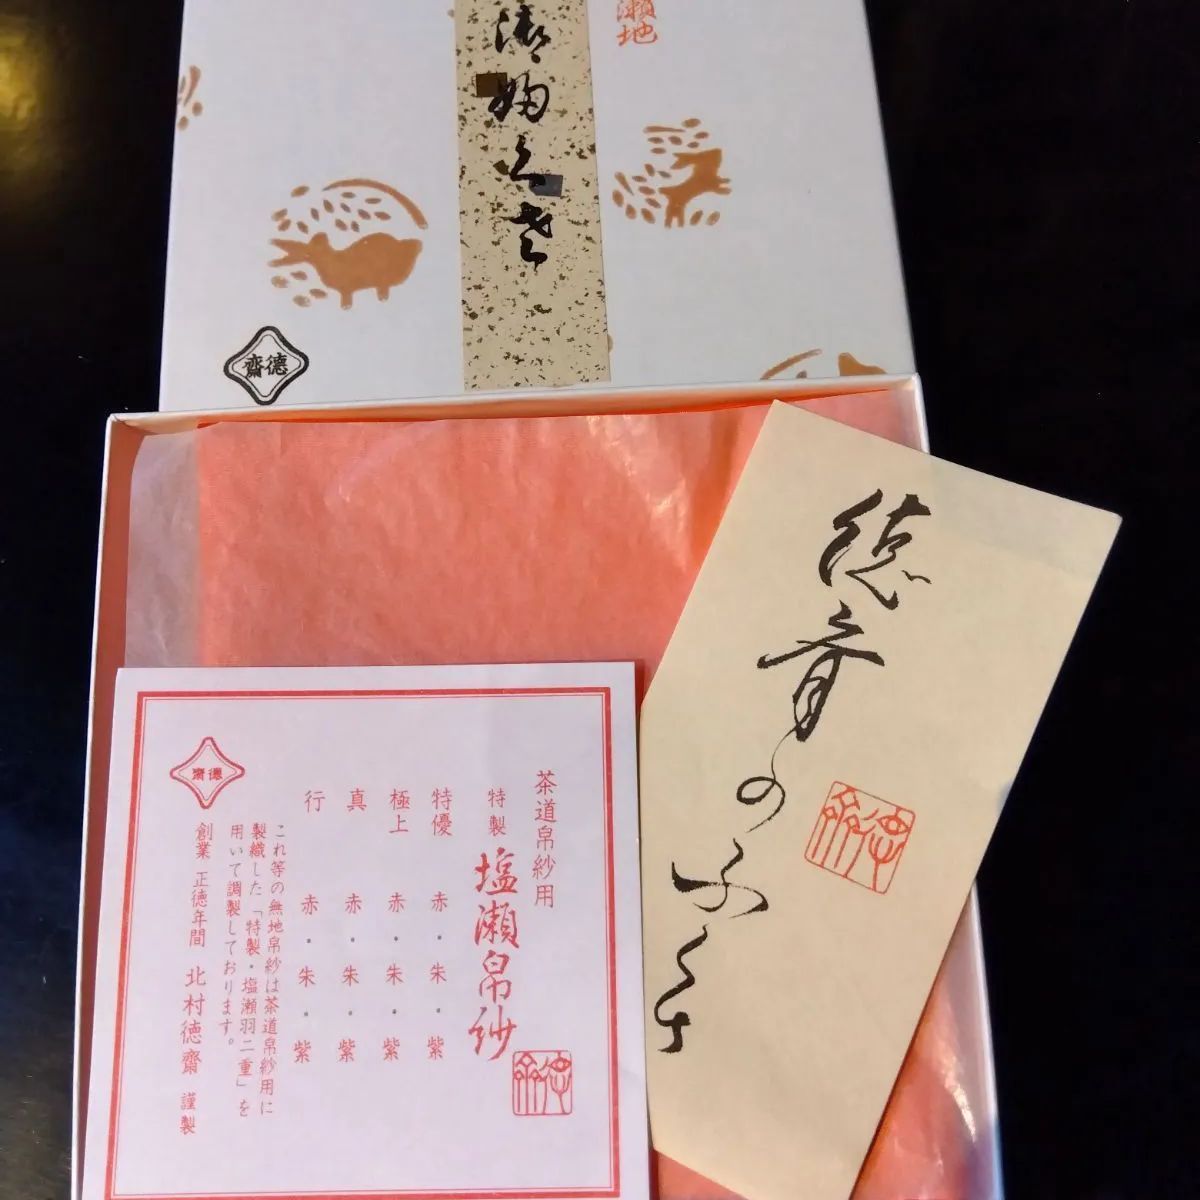 瀬地
御ふくさ
德齋
德齋のふくさ
德齋
茶道帛紗用
特製 塩瀬帛紗
特優 赤・朱・紫
極上 赤・朱・紫
真 赤・朱・紫
行 赤・朱・紫
これ等の無地帛紗は茶道帛紗用に
製織した「特製・塩瀬羽二重」を
用いて調製しております。
創業 正徳年間 北村徳齋 謹製
德齋
德齋